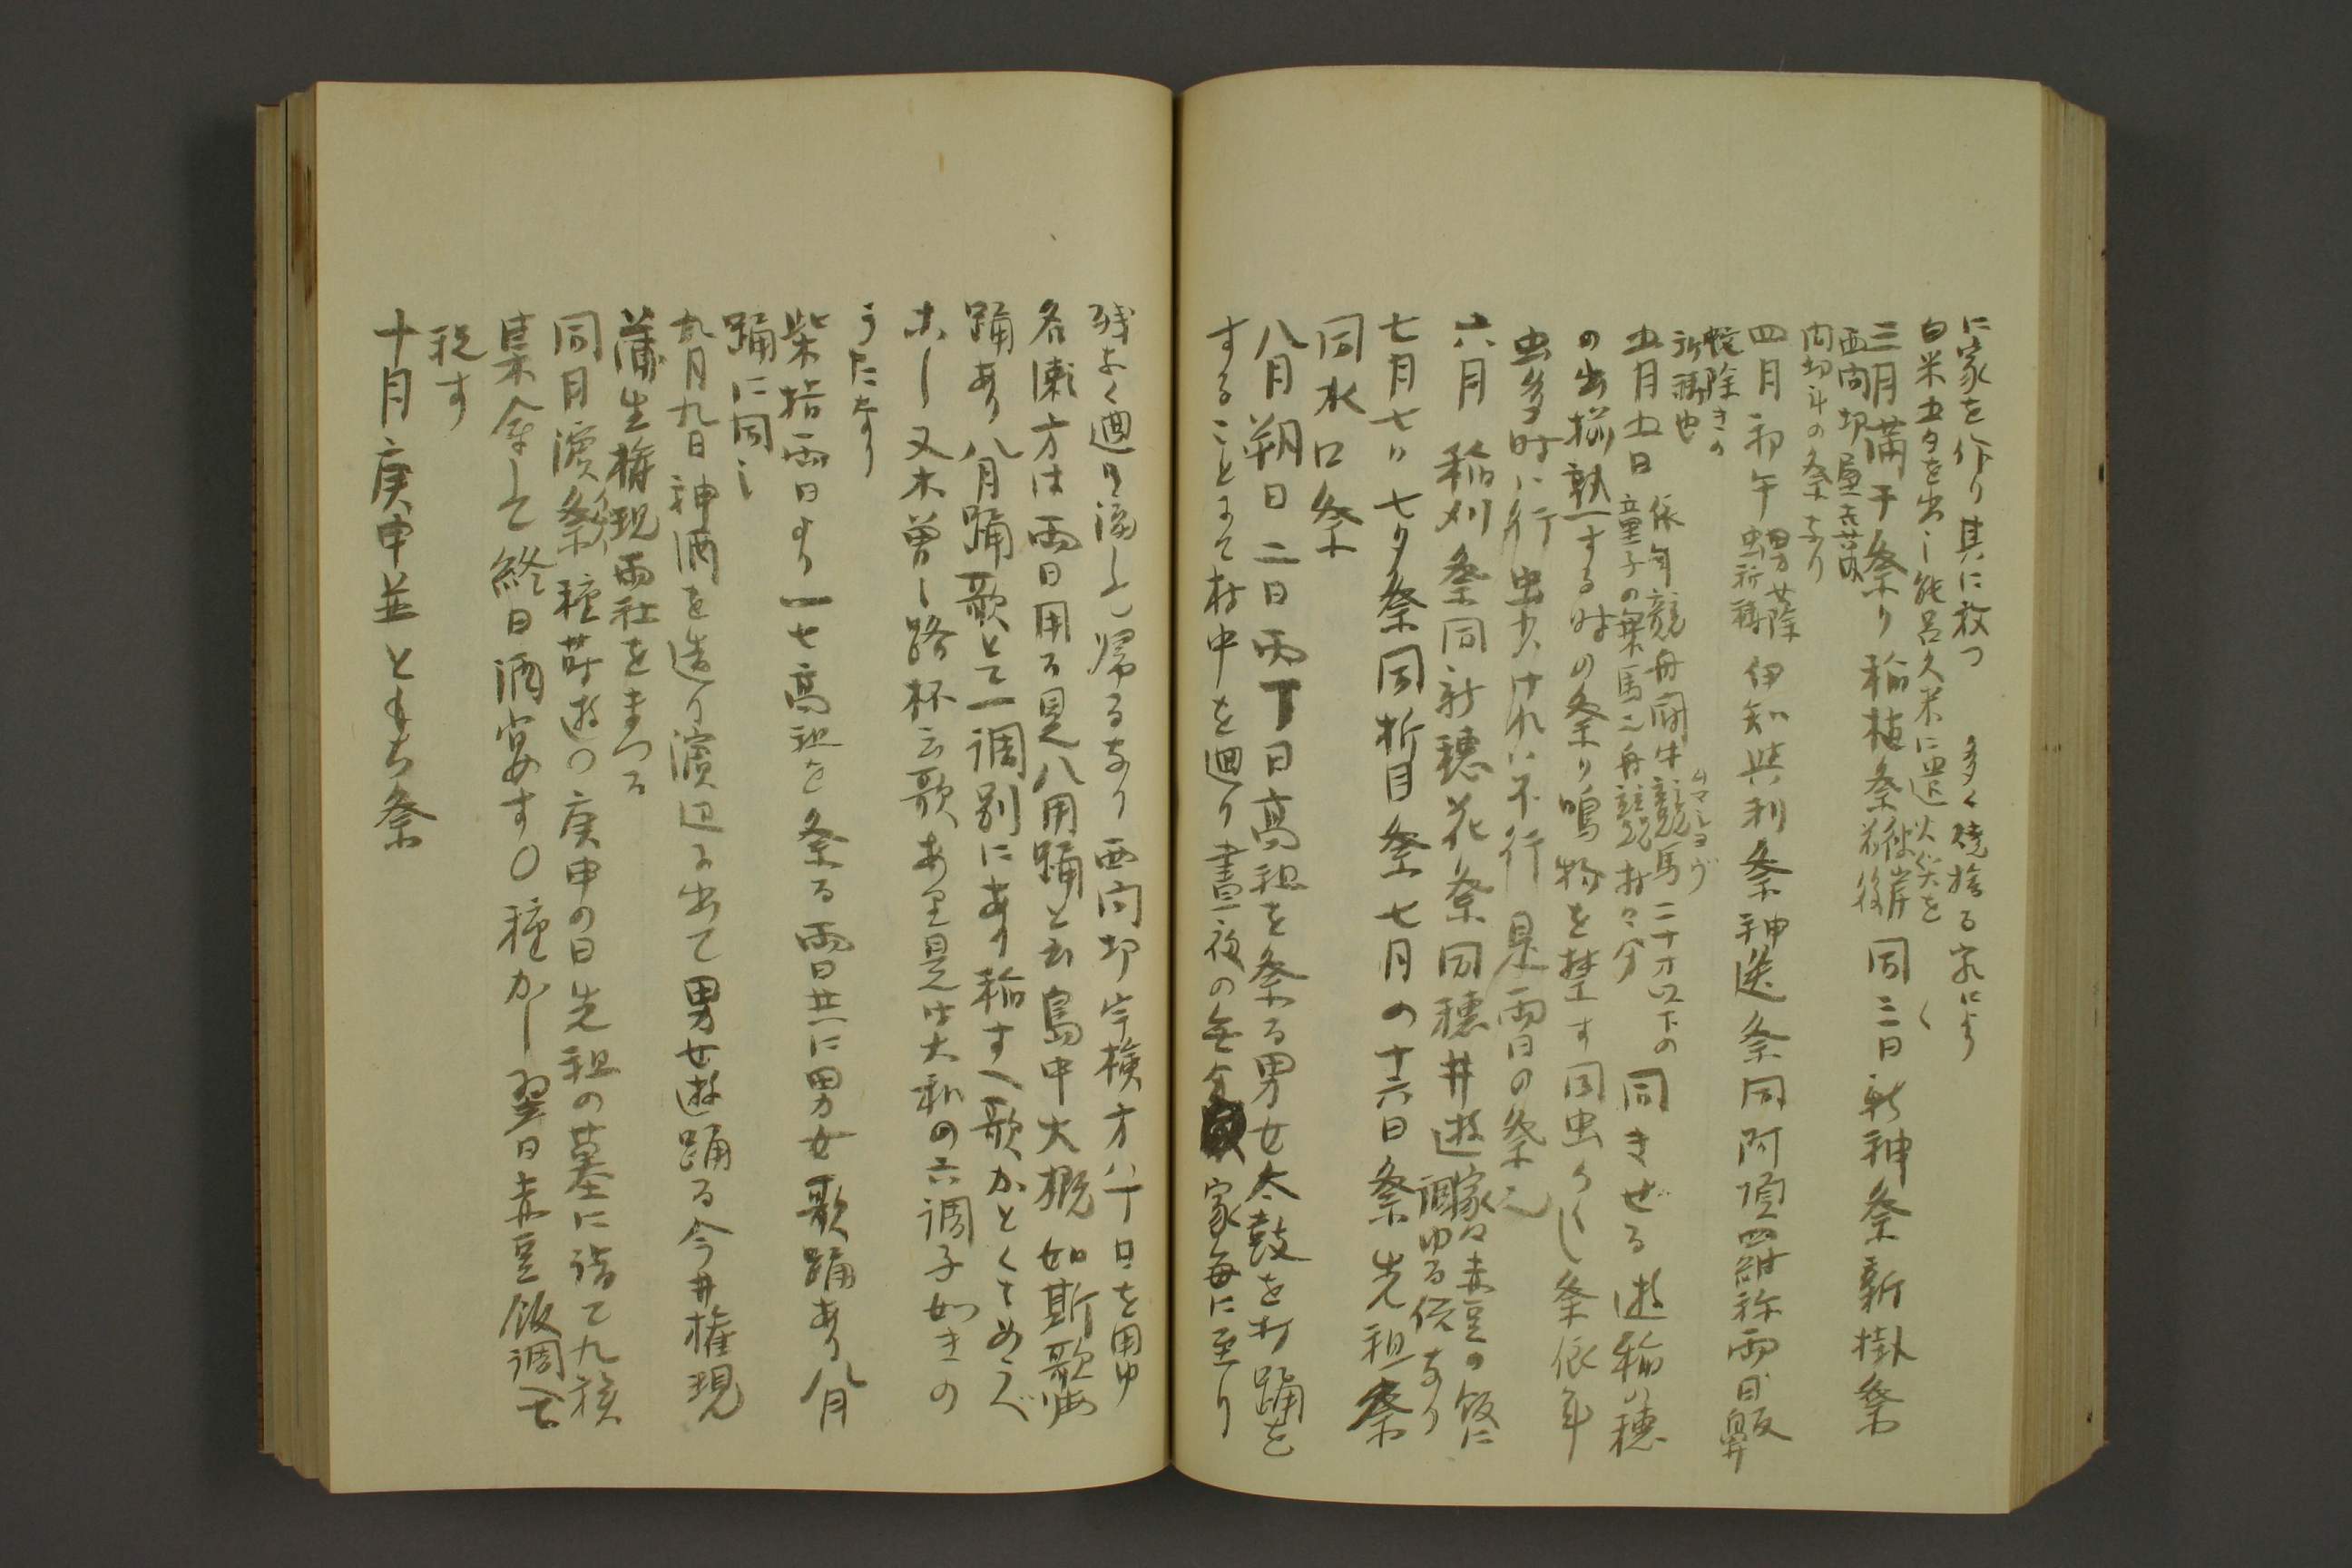 に家を作り其に移つ　多く焼捨る家により
白米五夕を出し能呂久米に廻火災を
三月満干祭り稲植祭彼岸後同三日新神祭新掛祭
西間切
間切斗の祭なり
四月初午虫祈祷伊知與利祭神送祭同阿頂羅称両日
蛇除きの
祈祷也
五月五日依年競舟闘牛競馬二十才以下の同きせる遊稲の穂
童子の乗馬二舟競村々分
の出揃熟する時の祭り鳴物を禁す同虫からし祭依年
虫多時に行虫少けれは不行是両日の祭
六月稲刈祭同新穂花祭同穂井遊家々赤豆の飯に
調ゆる俗なり
七月七日七夕祭同折目祭七月の十六日祭先祖祭
同水口祭
八月朔日二日丙丁日高祖を祭る男女太鼓を打踊を
することにて村中を廻り晝夜の無家毎に至り
残なく廻り済して帰るなり西間切宇検方八丁日を用ゆ
名瀬方は両日用る是八月踊と云島中大概如斯歌
踊あり八月踊歌とて一調別にあり稲すへ歌かとくすめくべ
ホし又木曽し路杯云歌あり是は大和の六調子如きの
うたなり
柴指両日より一七高祖を祭る両日共に男女歌踊あり八月
踊に同し
九月九日神酒を造り濱辺に出て男女遊踊る今井権現
蒲生権現両社をまつる
同月濱祭種蒔遊〇庚申の日先祖の墓に詣て九族
集会して終日酒宴す〇種かし翌日赤豆飯調へ
祝す
十月庚申並ともち祭